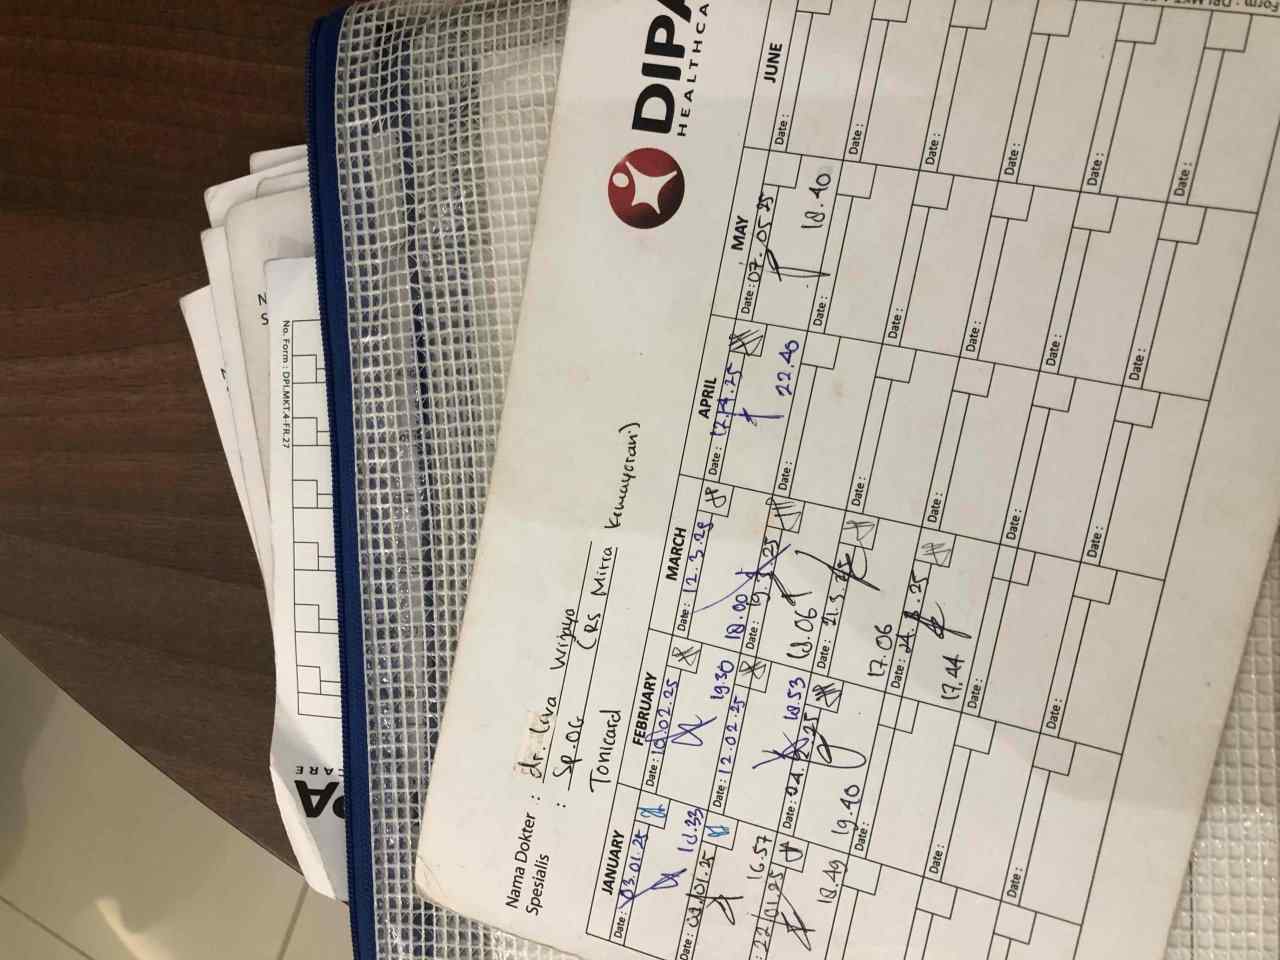 DIPA
HEALTHCA
Nama Dokter : dr. Liva Wijaya
Spesialis : Sp.OG (RS Mitra Kemayoran)
Tonicard
JANUARY FEBRUARY MARCH APRIL MAY JUNE
Date: 03.01.25 Date: 10.02.25 Date: 12.3.25 Date: 17.4.25 Date: 07.05.25 Date:
18.33 19.30 18.00 22.40 18.40
Date: 09.01.25 Date: 12.02.25 Date: 19.3.25 Date: Date: Date:
16.57 18.53 18.06
: 22.01.25 Date: 24.2.25 Date: 21.3.25 Date: Date: Date:
18.49 19.40 17.06
Date: Date: 24.3.25 Date: Date: Date:
17.44
Date: Date: Date: Date: Date:
Date: Date: Date: Date: Date:
No. Form : DPI.MKT.4-FR.27
PA
CARE
N
S